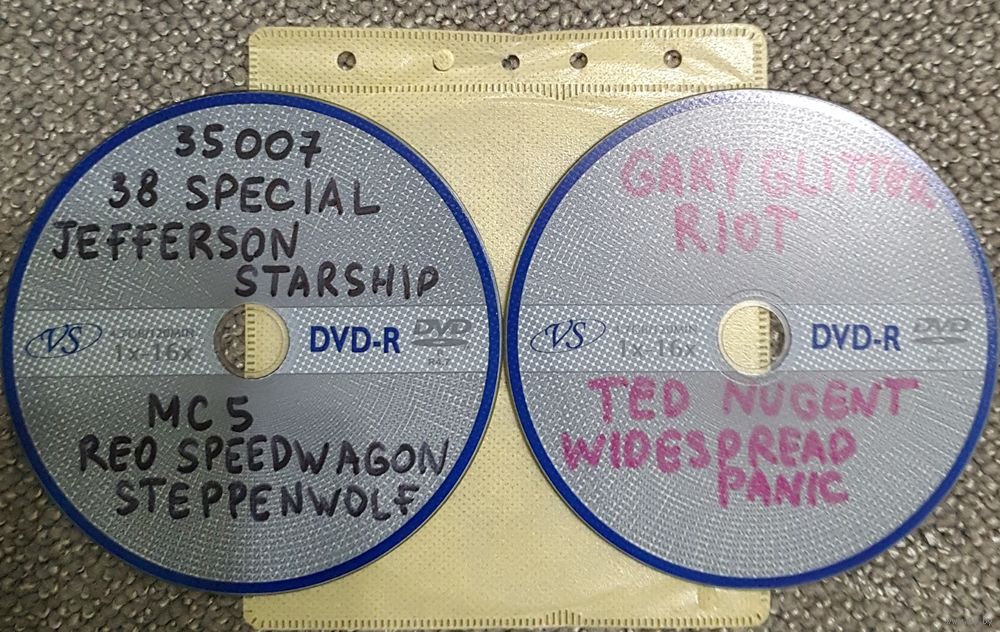 35007
38 SPECIAL
JEFFERSON
STARSHIP
VS
4.7GB/120MIN
1x-16x
DVD-R
DVD
R4.7
MC5
REO SPEEDWAGON
STEPPENWOLF
GARY GLITTER
RIOT
VS
4.7GB/120MIN
1x-16x
DVD-R
DVD
TED NUGENT
WIDESPREAD
PANIC